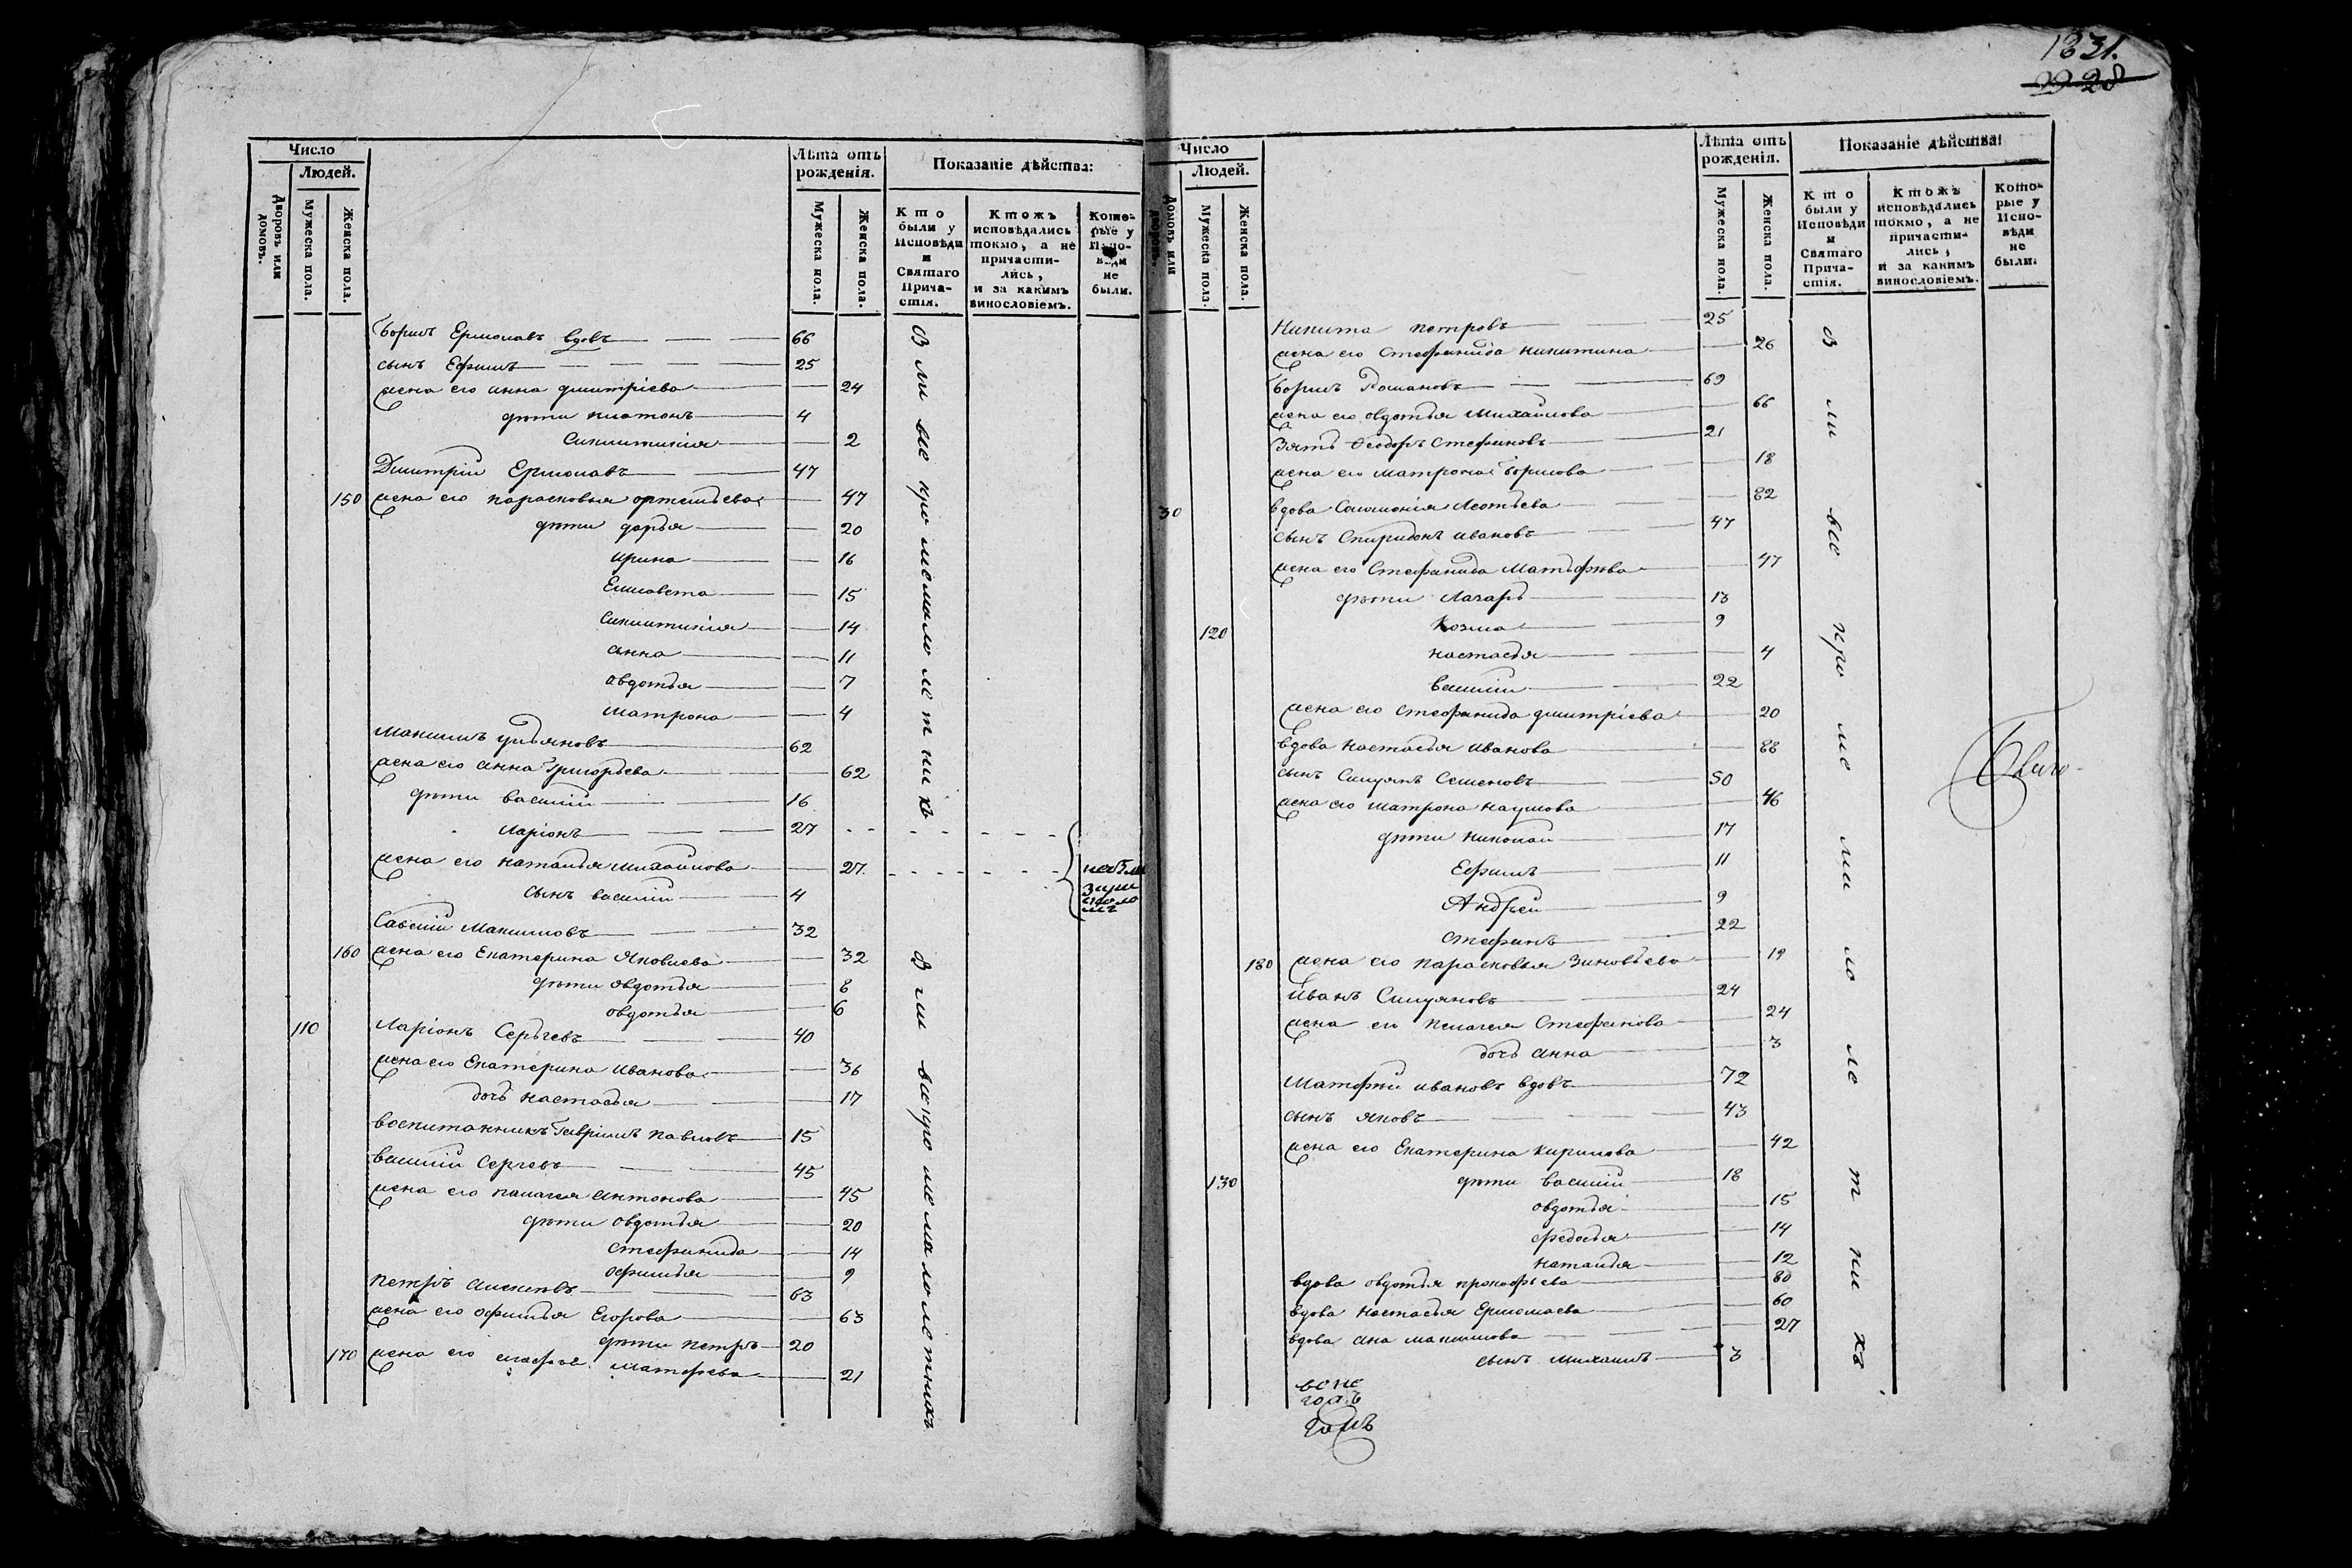 1831.
29 28
Число
Людей.
Дворовъ или домовъ.
Мужеска пола.
Женска пола.
Лѣта отъ рожденія.
Мужеска пола.
Женска пола.
Показаніе дѣйства:
Кто были у Исповѣди и Святаго Прича-стія.
Ктожъ исповѣдались токмо, а не причасти-лись, и за какимъ винословіемъ.
Кото-рые у Испо-вѣди не были.
Борисъ Ермолавъ вдовъ 66
сынъ Ефимъ 25
жена его анна дмитріева 24
дѣти платонъ 4
Синклитикія 2
Дмитріи Ермолавъ 47
150 жена его парасковья ортемьева 47
дѣти дарья 20
ирина 16
Елисавета 15
Синклитикія 14
анна 11
авдотья 7
матрона 4
Максимъ ульяновъ 62
жена его анна Григорьева 62
дѣти василии 16
Ларіонъ 27
жена его наталья михайлова 27
сынъ василии 4
Савелии Максимовъ 32
160 жена его Екатерина Яковлева 32
дѣти овдотья 8
овдотья 6
110 Ларіонъ Сергѣевъ 40
жена его Екатерина иванова 36
дочь настасья 17
воспитанникъ Гаврилъ павловъ 15
василии Сергѣевъ 45
жена его палагея антонова 45
дѣти овдотья 20
стефанида 14
офимья 9
петръ алексѣевъ 63
жена его офимья Егорова 63
дѣти петръ 20
170 жена его матфѣева 21
Были все кроме малолетнихъ
Были все кроме малолетнихъ
Число
Людей.
Домовъ или дворовъ.
Мужеска пола.
Женска пола.
Лѣта отъ рожденія.
Мужеска пола.
Женска пола.
Показаніе дѣйства:
Кто были у Исповѣди и Святаго Прича-стія.
Ктожъ исповѣдались токмо, а не причасти-лись, и за какимъ винословіемъ.
Кото-рые у Испо-вѣди не были.
Никита петровъ 25
жена его Стефанида никитина 26
Борисъ Романовъ 69
жена его овдотья Михайлова 66
Зять Феодоръ Стефановъ 21
жена его матрона Борисова 18
30 вдова Соломонія Леонтьева 82
сынъ Спиридонъ ивановъ 47
жена его Стефанида Матьфѣева 47
дѣти Лазарь 13
120 Козма 9
настасья 4
василии 22
жена его стефанида дмитріева 20
вдова настасья иванова 88
сынъ Силуянъ Семеновъ 50
жена его матрона наумова 46
дѣти николаи 17
Ефимъ 11
Андреи 9
стефанъ 22
180 жена его парасковья Зиновьева 19
иванъ Силуяновъ 24
жена его пелагея Стефанова 24
дочь анна 3
Матфѣи ивановъ вдовъ 72
сынъ яковъ 43
жена его Екатерина кирилова 42
130 дѣти василии 18
овдотья 15
федосья 14
наталья 12
вдова овдотья прокофьева 80
вдова настасья Ермолаева 60
вдова ана максимова 27
сынъ михаилъ 3
Были все кроме малолетнихъ